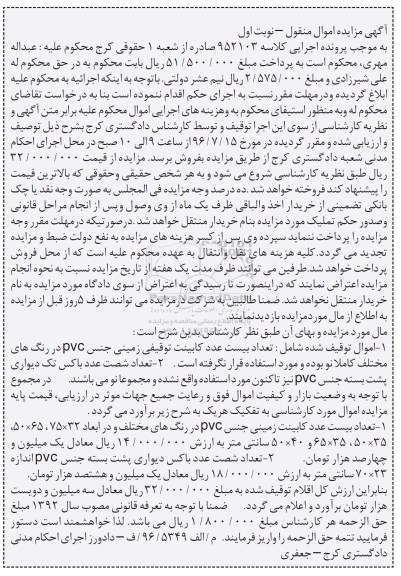 آگهی مزایده اموال منقول – نوبت اول
به موجب پرونده اجرایی کلاسه ۹۵۲۱۰۳ صادره از شعبه ۱ حقوقی کرج محکوم علیه : عبداله
مهری، محکوم است به پرداخت مبلغ ۵۱/۵۰۰/۰۰۰ ریال بابت محکوم به در حق محکوم له
علی شیرزادی و مبلغ ۲/۵۷۵/۰۰۰ ریال نیم عشر دولتی. باتوجه به اینکه اجرائیه به محکوم علیه
ابلاغ گردیده و درمهلت مقررنسبت به اجرای حکم اقدام ننموده است بنا به درخواست تقاضای
محکوم له وبه منظور استیفای محکوم به وهزینه های اجرایی اموال محکوم علیه برابر متن آگهی و
نظریه کارشناسی از سوی این اجرا توقیف و توسط کارشناس دادگستری کرج بشرح ذیل توصیف
و ارزیابی شده و مقرر گردیده در مورخ ۹۶/۷/۱۵ از ساعت ۹ الی ۱۰ صبح در محل اجرای احکام
مدنی شعبه دادگستری کرج از طریق مزایده بفروش برسد. مزایده از قیمت ۳۲/۰۰۰/۰۰۰
ریال طبق نظریه کارشناسی شروع می شود و به هر شخص حقیقی وحقوقی که بالاترین قیمت
را پیشنهاد کند فروخته خواهد شد .ده درصد وجه مزایده فی المجلس به صورت وجه نقد یا چک
بانکی تضمینی از خریدار اخذ والباقی ظرف یک ماه از وی وصول و پس از انجام مراحل قانونی
وصدور حکم تملیک مورد مزایده بنام خریدار منتقل خواهد شد .درصورتیکه درمهلت مقرر وجه
مزایده را پرداخت ننماید سپرده وی پس از کسر هزینه های مزایده به نفع دولت ضبط و مزایده
تجدید می گردد.کلیه هزینه های نقل وانتقال به عهده محکوم علیه است که از محل فروش
پرداخت خواهد شد.طرفین می توانند ظرف مدت یک هفته از تاریخ مزایده نسبت به نحوه انجام
مزایده اعتراض نمایند که دراینصورت تا رسیدگی به اعتراض از سوی دادگاه مورد مزایده به نام
خریدار منتقل نخواهد شد. ضمنا طالبین به شرکت درمزایده می توانند ظرف ۵روز قبل از مزایده
به اطلاع از مال موردمزایده بازدیدنمایند.
مال مورد مزایده و بهای آن طبق نظر کارشناس بدین شرح است :
۱-اموال توقیف شده شامل : تعداد بیست عدد کابینت توقیفی زمینی جنس pvc در رنگ های
مختلف کاملا نو بوده و مورد استفاده قرار نگرفته است . ۲-تعداد شصت عدد باکس تک دیواری
پشت بسته جنس pvc نیز تاکنون مورد استفاده واقع نشده و مجموعا نو می باشند. در مجموع
با توجه به وضعیت بازار و کیفیت اموال فوق و رعایت جمیع جهات موثر در ارزیابی، قیمت پایه
مزایده اموال مورد کارشناسی به تفکیک هریک به شرح زیر برآورد می گردد .
۱-تعداد بیست عدد کابینت زمینی جنس pvc در رنگ های مختلف و در ابعاد ۳۲×۷۵، ۶۵×۵۰،
۳۵×۵۰، ۳۵×۶۵ و ۴۰×۵۰ سانتی متر به ارزش ۱۴/۰۰۰/۰۰۰ ریال معادل یک میلیون و
چهارصد هزار تومان. ۲-تعداد شصت عدد باکس دیواری پشت بسته جنس pvc اندازه
۲۳×۷۰ سانتی متر به ارزش ۱۸/۰۰۰/۰۰۰ ریال معادل یک میلیون و هشتصد هزار تومان.
بنابراین ارزش کل اقلام توقیف شده به مبلغ ۳۲/۰۰۰/۰۰۰ ریال معادل سه میلیون و دویست
هزار تومان برآورد و اعلام می گردد. ضمنا با توجه به تعرفه قانونی مصوب سال ۱۳۹۲ مبلغ
حق الزحمه هر کارشناس مبلغ ۱/۸۰۰/۰۰۰ ریال می باشد. لذا خواهشمند است دستور
فرمایید تتمه حق الزحمه را واریز فرمایند. م/الف ۹۶/۵۳۴۹/ف – دادورز اجرای احکام مدنی
دادگستری کرج – جعفری